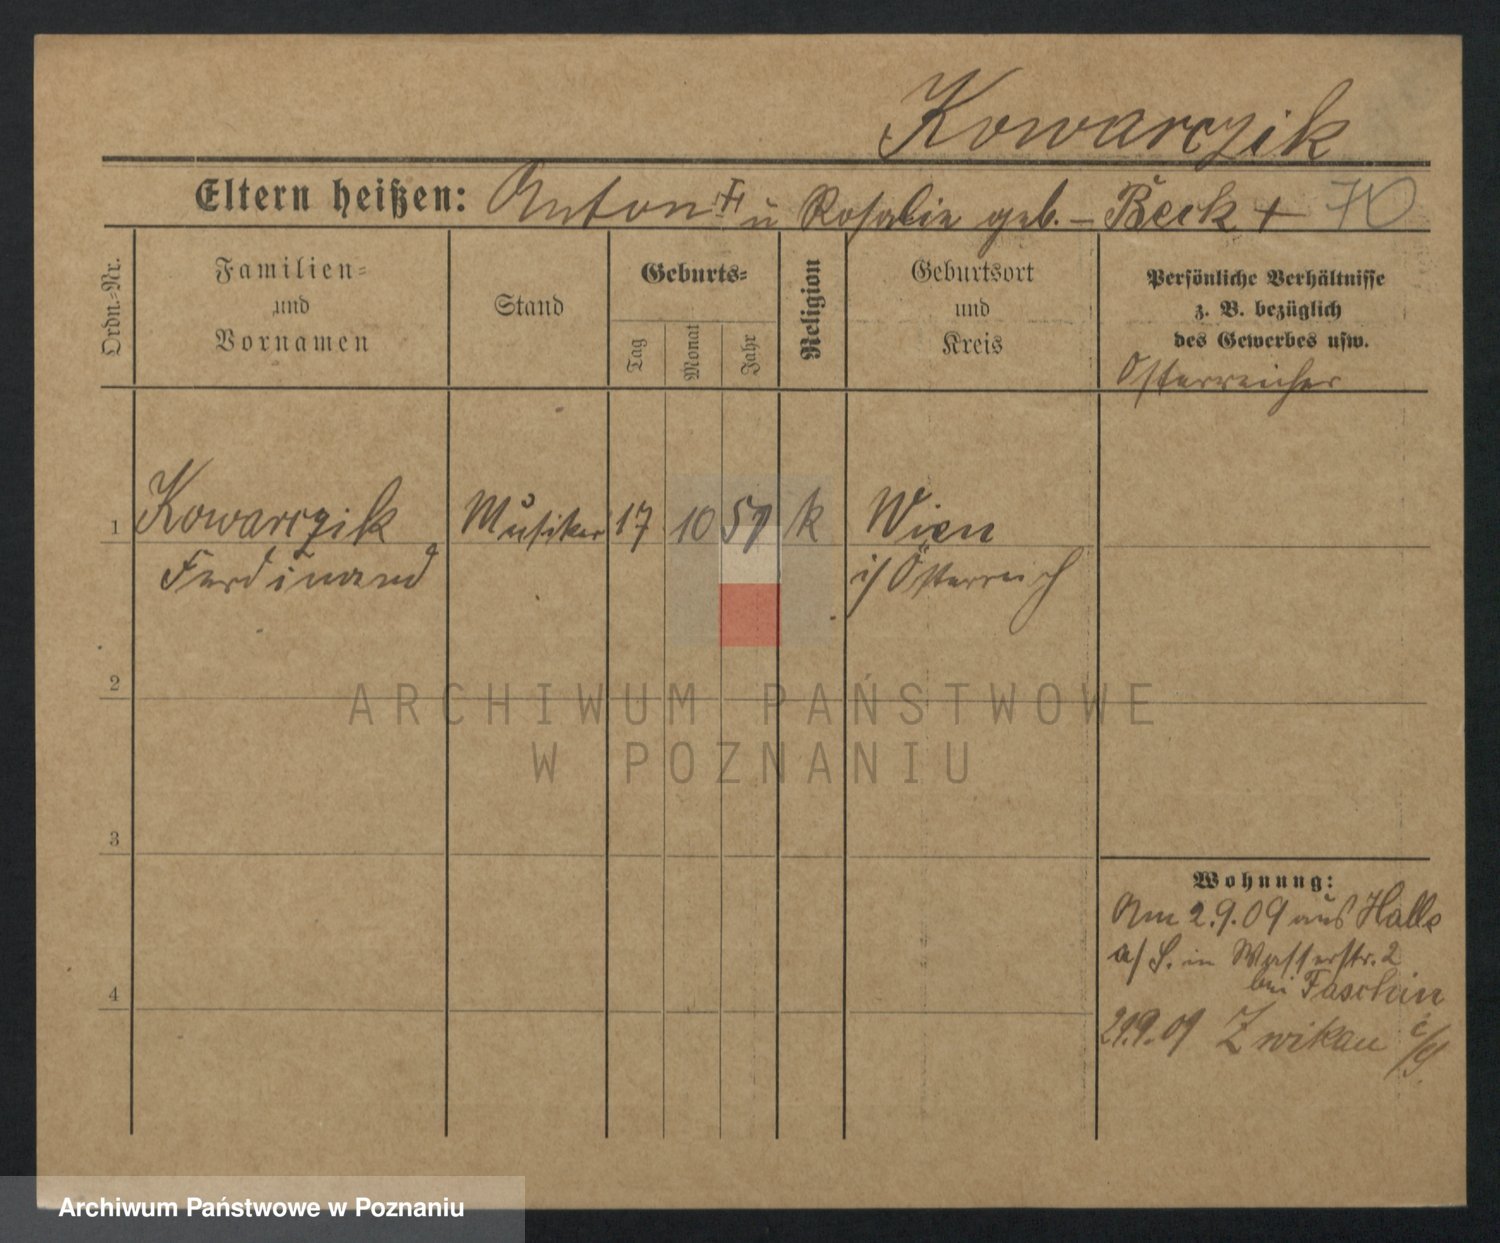 Kowarczik
Eltern heißen: Anton + u Rosalie geb. – Beck + 70
Ordn.-Nr.
Familien-
und
Vornamen
Stand
Geburts-
Tag
Monat
Jahr
Religion
Geburtsort
und
Kreis
Persönliche Verhältnisse
z. B. bezüglich
des Gewerbes usw.
Österreicher
1 Kowarczik Musiker 17 10 51 k Wien
Ferdinand i/ Österreich
2
ARCHIWUM PAŃSTWOWE
W POZNANIU
3
Wohnung:
Am 2.9.09 aus Halle
a/S. in Wasserstr. 2
bei
4
09 Zwikau i/S.
Archiwum Państwowe w Poznaniu